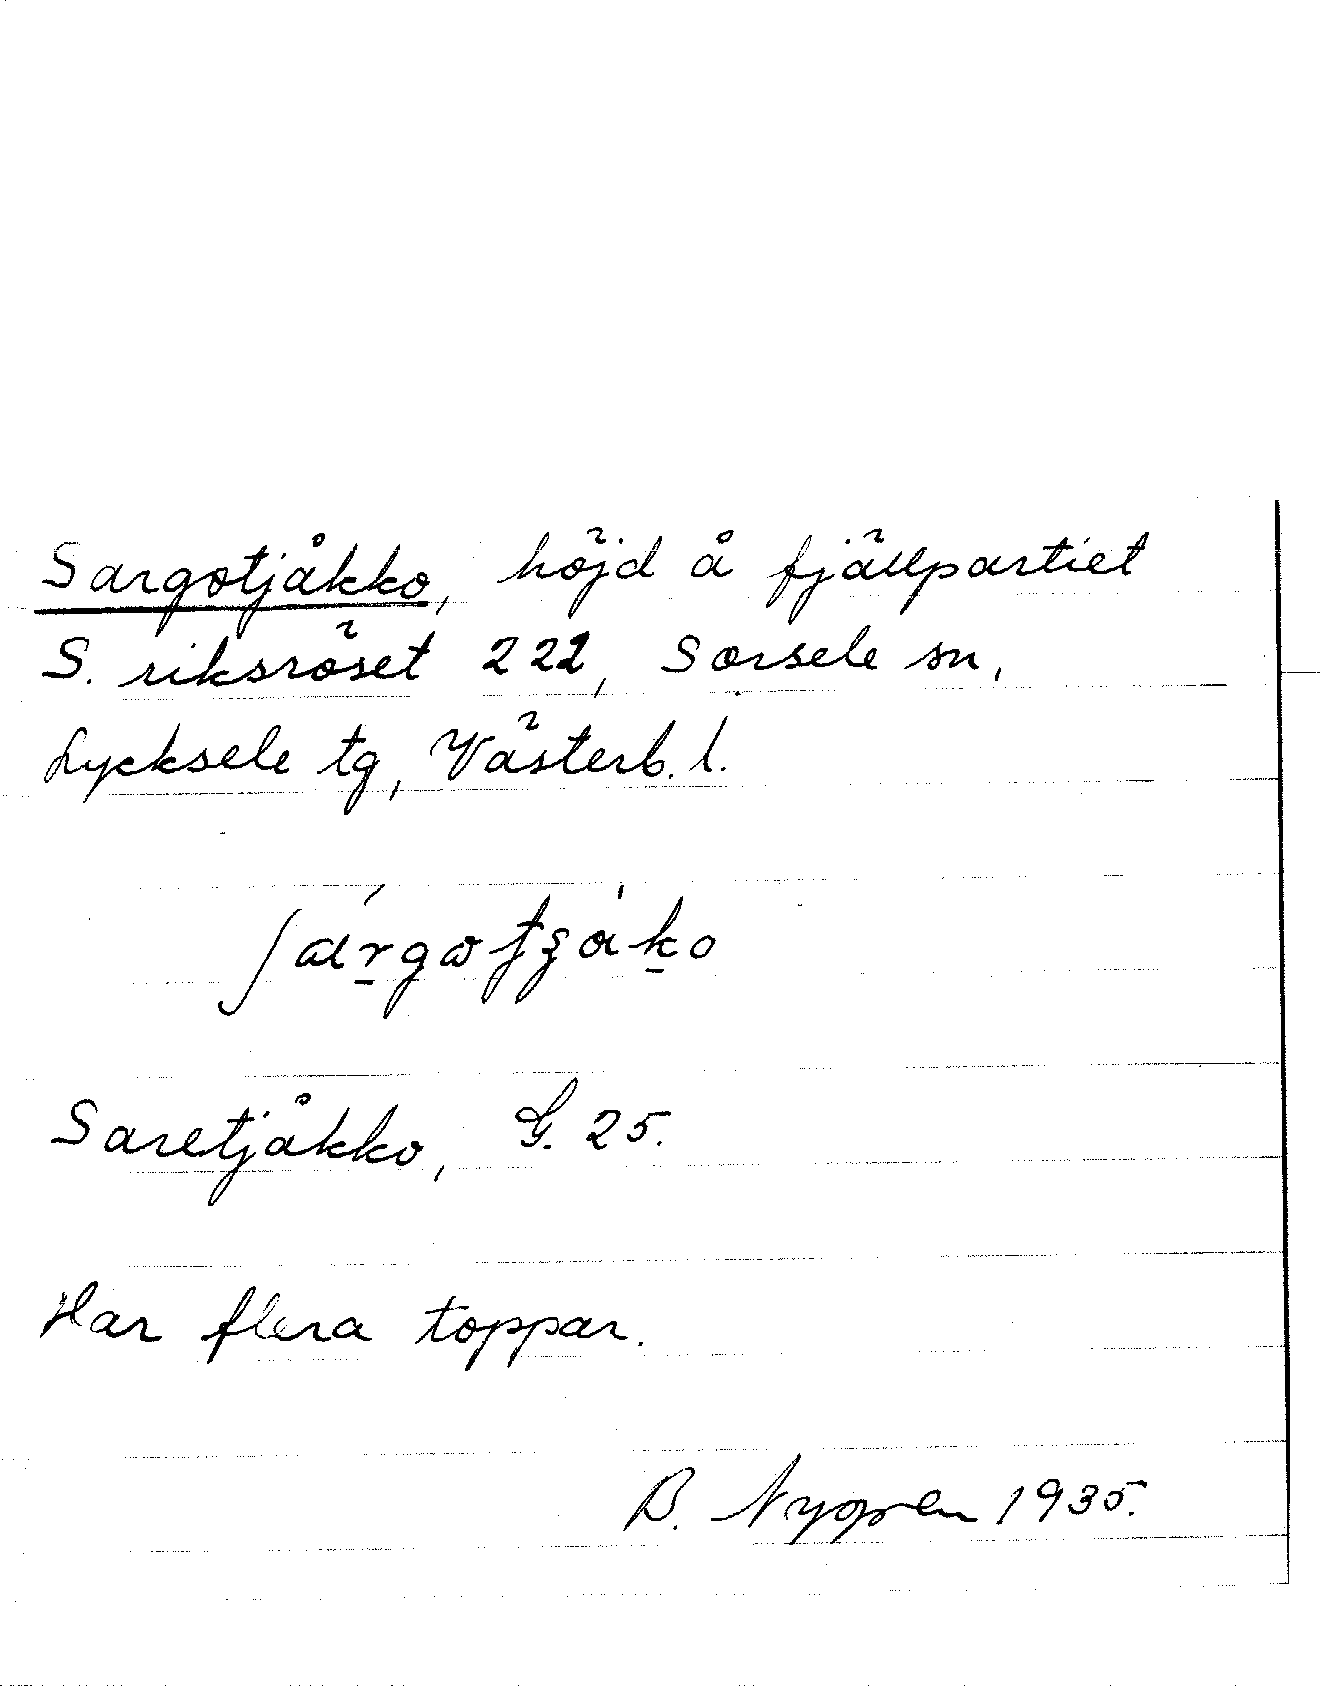 Sargotjåkko, höjd å fjällpartiet
S. riksröset 222, Sorsele sn,
Lycksele tg, Västerb. l.
Saretjåkko, G. 25.
Har flera toppar.
B. Nygren 1935.